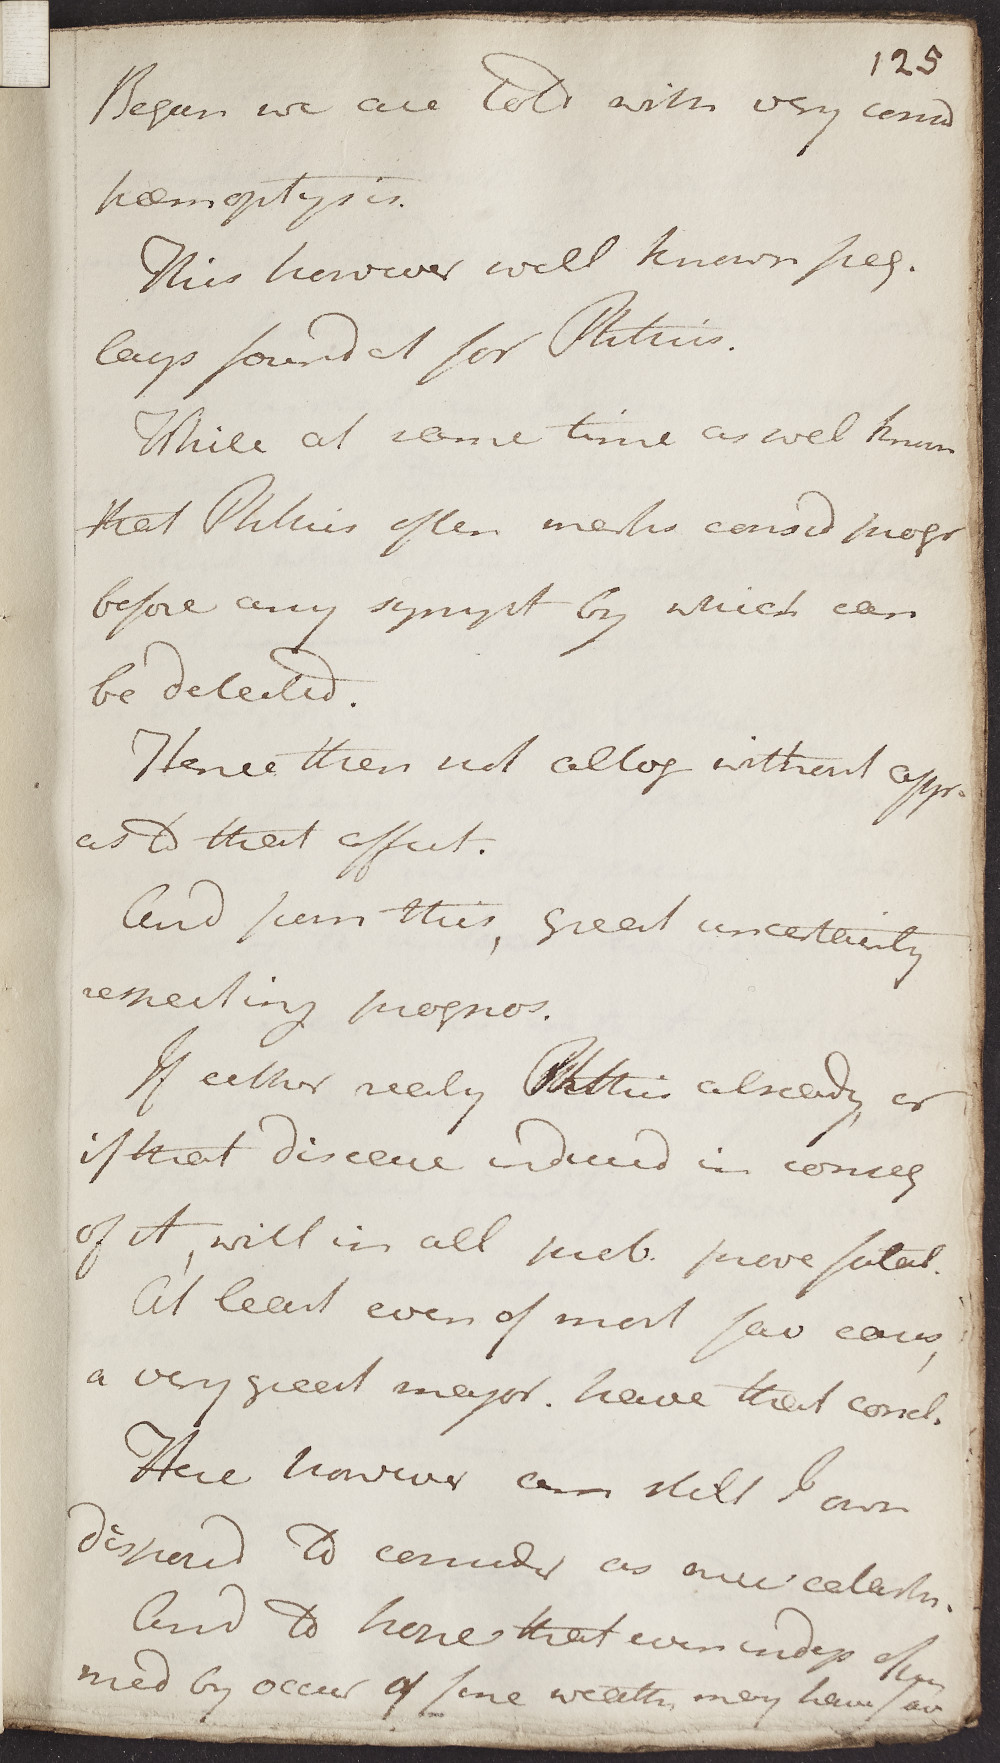 125
Began we are told with very consid
hæmoptysis.
This however well known freq.
lays foundat for Phthisis.
While at same time as wel known
that Phthisis often makes consid progr
before any sympt by which can
be detected.
Hence then not altog without appr.
as to that effect.
And from this, great uncertainty
respecting prognos.
If either realy Phthisis already, or
if that disease induced in conseq
of it, will in all prob. prove fatal.
At least even of most fav cases,
a very great major. have that concl.
Here however am still I own
disposed to consider as mere catarh.
And to hope that even indep of
med by occur of fine weath, may have fav